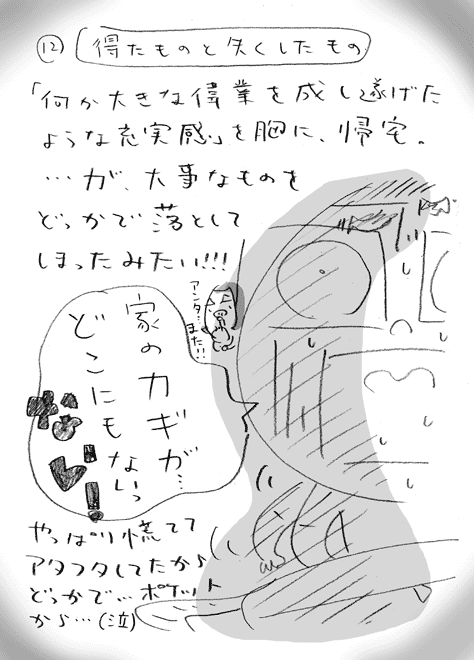 ⑫ 得たものと失くしたもの
「何か大きな偉業を成し遂げた
ような充実感」を胸に、帰宅。
…が、大事なものを
どっかで落として
しまったみたい!!!
アンタ…
また!!
家のカギが…
どこにも
ないっ
なぁい!
やっぱり慌てて
アタフタしてたから
どっかで…ポケット
から…(泣)